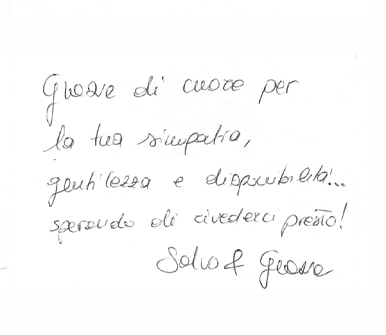 Grazie di cuore per
la tua simpatia,
gentilezza e disponibilità...
sperando di rivederci presto!
Salvo &